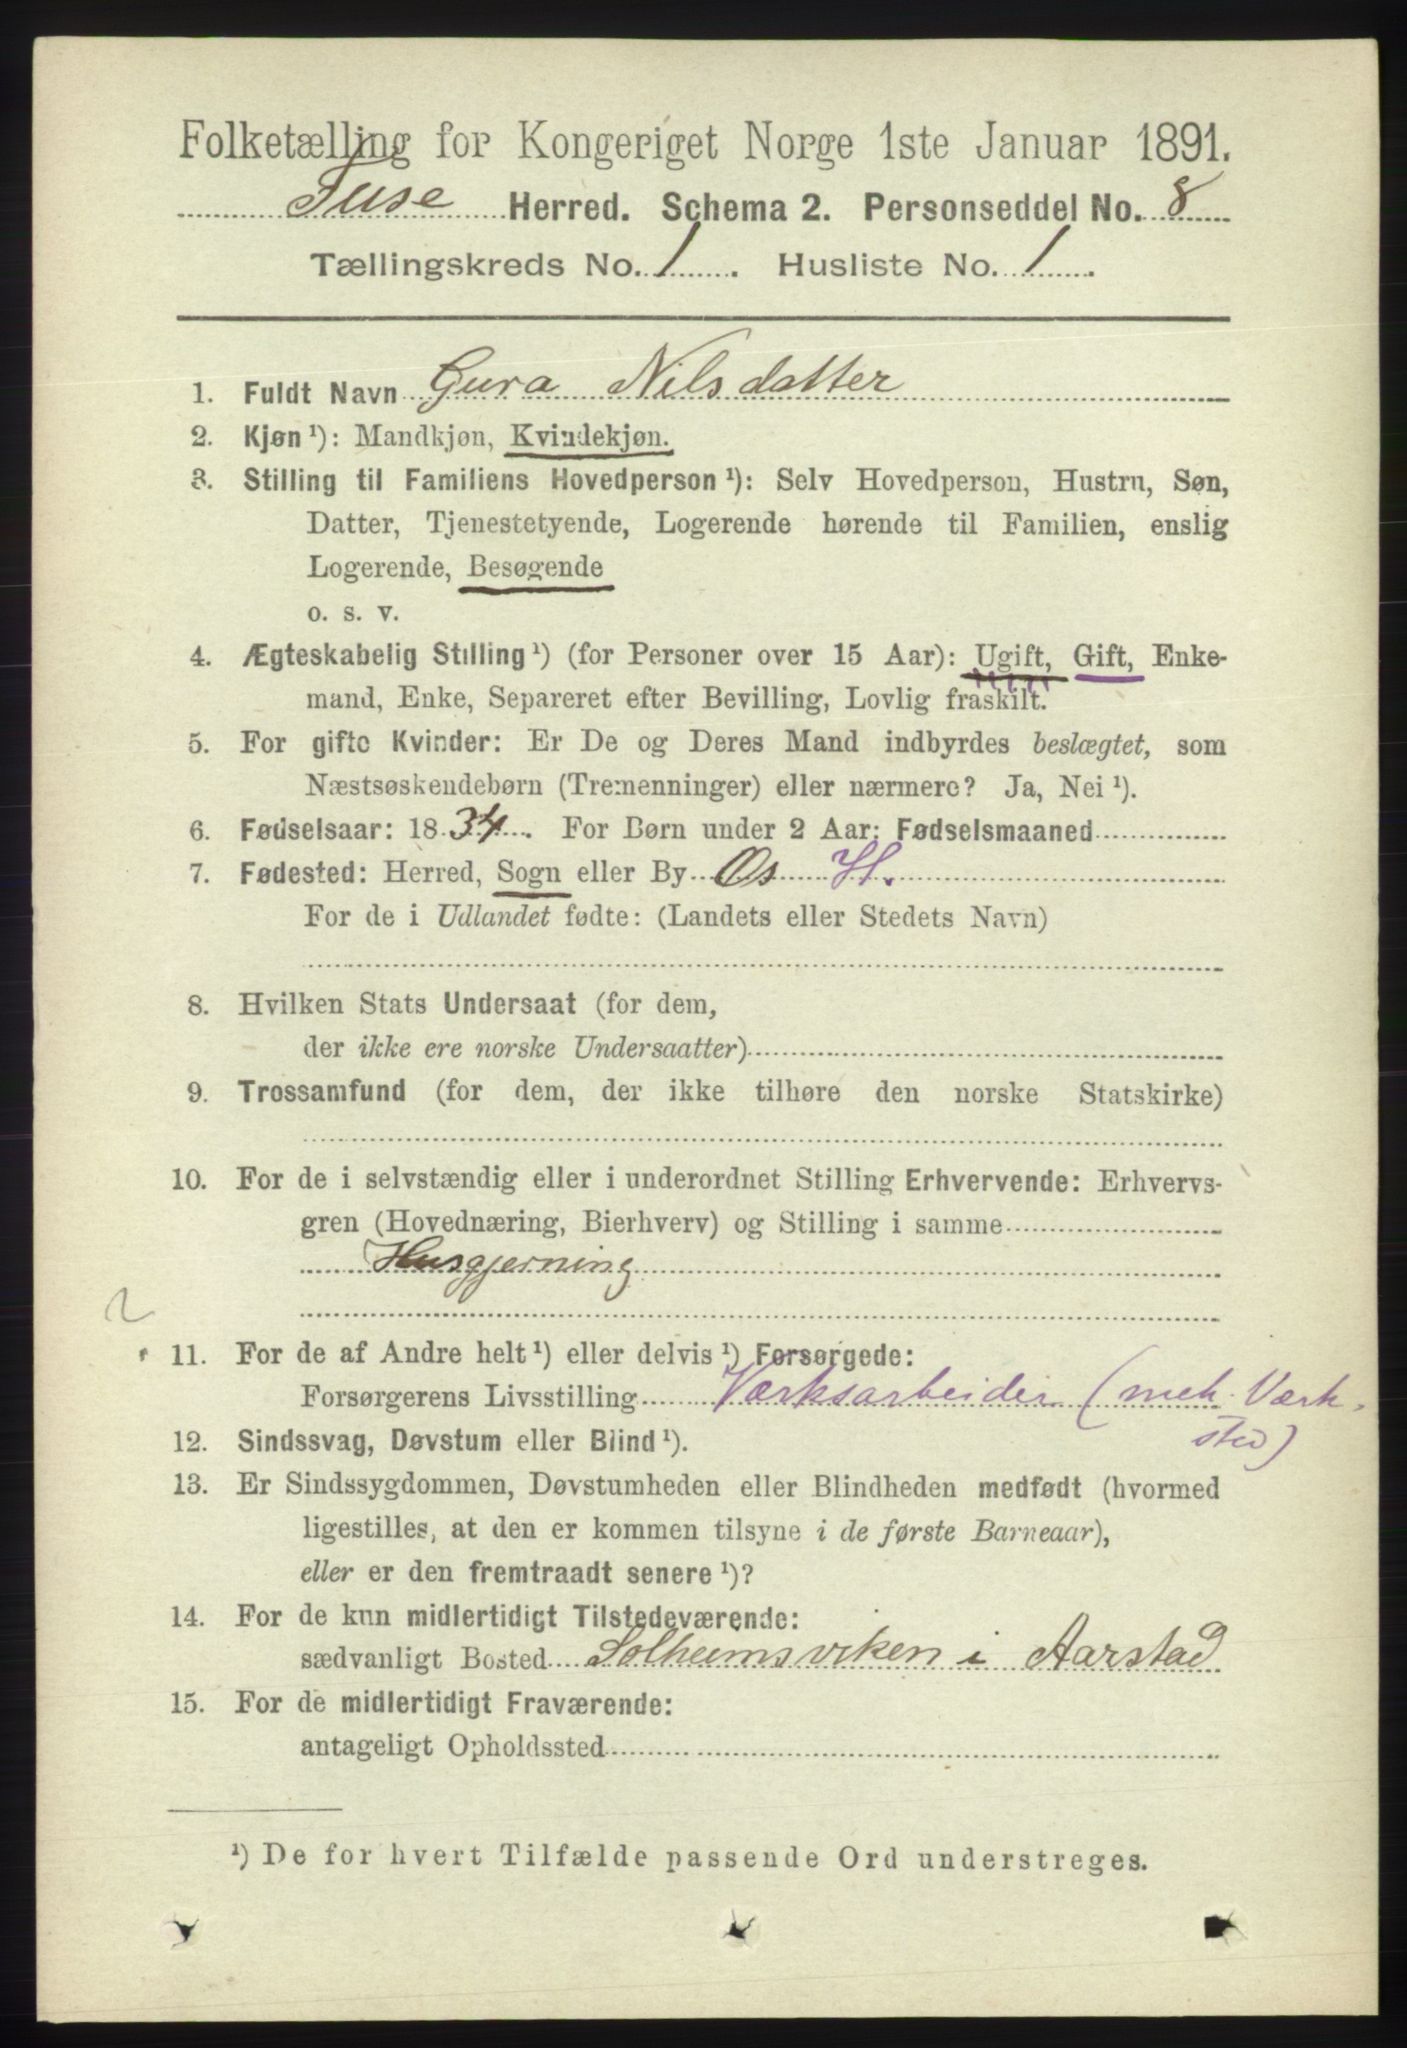 Folketælling for Kongeriget Norge 1ste Januar 1891.
Fuse Herred. Schema 2. Personseddel No. 8
Tællingskreds No. 1. Husliste No. 1.
1. Fuldt Navn Gura Nilsdatter
2. Kjøn ¹): Mandkjøn, Kvindekjøn.
3. Stilling til Familiens Hovedperson ¹): Selv Hovedperson, Hustru, Søn,
Datter, Tjenestetyende, Logerende hørende til Familien, enslig
Logerende, Besøgende
o. s. v.
4. Ægteskabelig Stilling ¹) (for Personer over 15 Aar): Ugift, Gift, Enke-
mand, Enke, Separeret efter Bevilling, Lovlig fraskilt.
5. For gifte Kvinder: Er De og Deres Mand indbyrdes beslægtet, som
Næstsøskendebørn (Tremenninger) eller nærmere? Ja, Nei ¹).
6. Fødselsaar: 1834. For Børn under 2 Aar: Fødselsmaaned
7. Fødested: Herred, Sogn eller By Os H.
For de i Udlandet fødte: (Landets eller Stedets Navn)
8. Hvilken Stats Undersaat (for dem,
der ikke ere norske Undersaatter)
9. Trossamfund (for dem, der ikke tilhøre den norske Statskirke)
10. For de i selvstændig eller i underordnet Stilling Erhvervende: Erhvervs-
gren (Hovednæring, Bierhverv) og Stilling i samme
Husgjerning
2
11. For de af Andre helt ¹) eller delvis ¹) Forsørgede:
Forsørgerens Livsstilling Værksarbeider (mek. Værk-
sted)
12. Sindssvag, Døvstum eller Blind ¹).
13. Er Sindssygdommen, Døvstumheden eller Blindheden medfødt (hvormed
ligestilles, at den er kommen tilsyne i de første Barneaar),
eller er den fremtraadt senere ¹)?
14. For de kun midlertidigt Tilstedeværende:
sædvanligt Bosted Solheimsviken i Aarstad
15. For de midlertidigt Fraværende:
antageligt Opholdssted
¹) De for hvert Tilfælde passende Ord understreges.